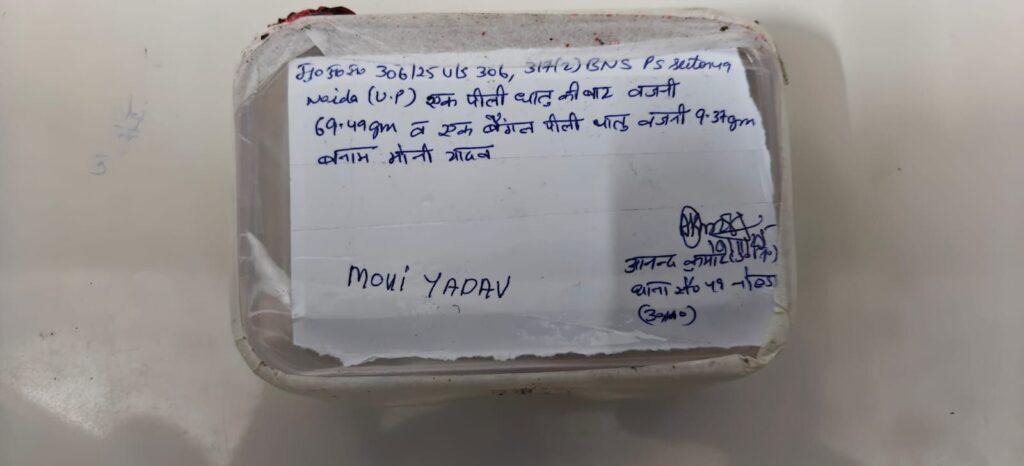 मु०अ०सं० 306/25 U/S 306, 317(2) BNS PS Sector 49
Noida (U.P) एक पीली धातु की बार वजनी
69.49gm व एक बैंगल पीली धातु वजनी 9.37gm
बनाम मोनी यादव
MONI YADAV
आनन्द कुमार
थाना से० 49 नोएडा
(उ०प्र०)